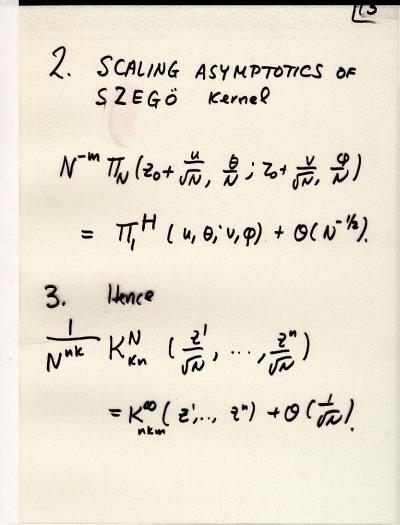 13
2. SCALING ASYMPTOTICS OF
SZEGÖ Kernel
N^{-m} Π_N (z_0 + u/√N, θ/N ; z_0 + v/√N, φ/N)
= Π_1^H (u, θ; v, φ) + O(N^{-1/2}).
3. Hence
1/N^{nk} K_{kn}^N (z^1/√N, ..., z^n/√N)
= K_{nkm}^∞ (z^1, .., z^n) + O(1/√N).